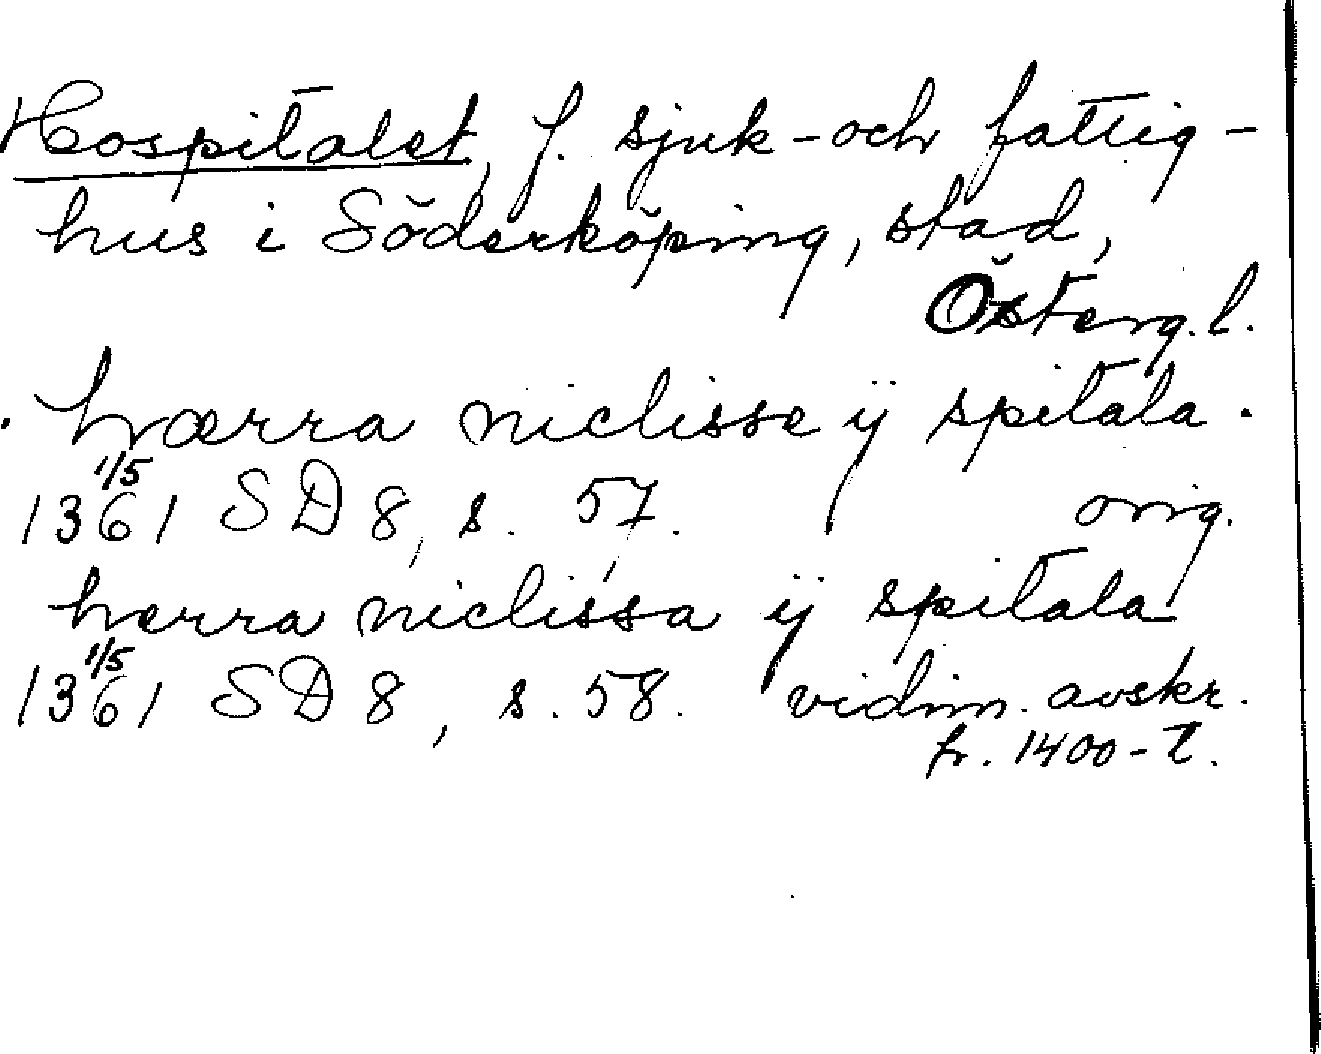 Hospitalet, f. sjuk- och fattig-
hus i Söderköping, stad,
Österg.l.
hærra niclisse ÿ spitala.
1361 1/5 SD 8, s. 57. orig.
hærra niclissa ÿ spitala
1361 1/5 SD 8, s. 58. vidim. avskr.
fr. 1400-t.